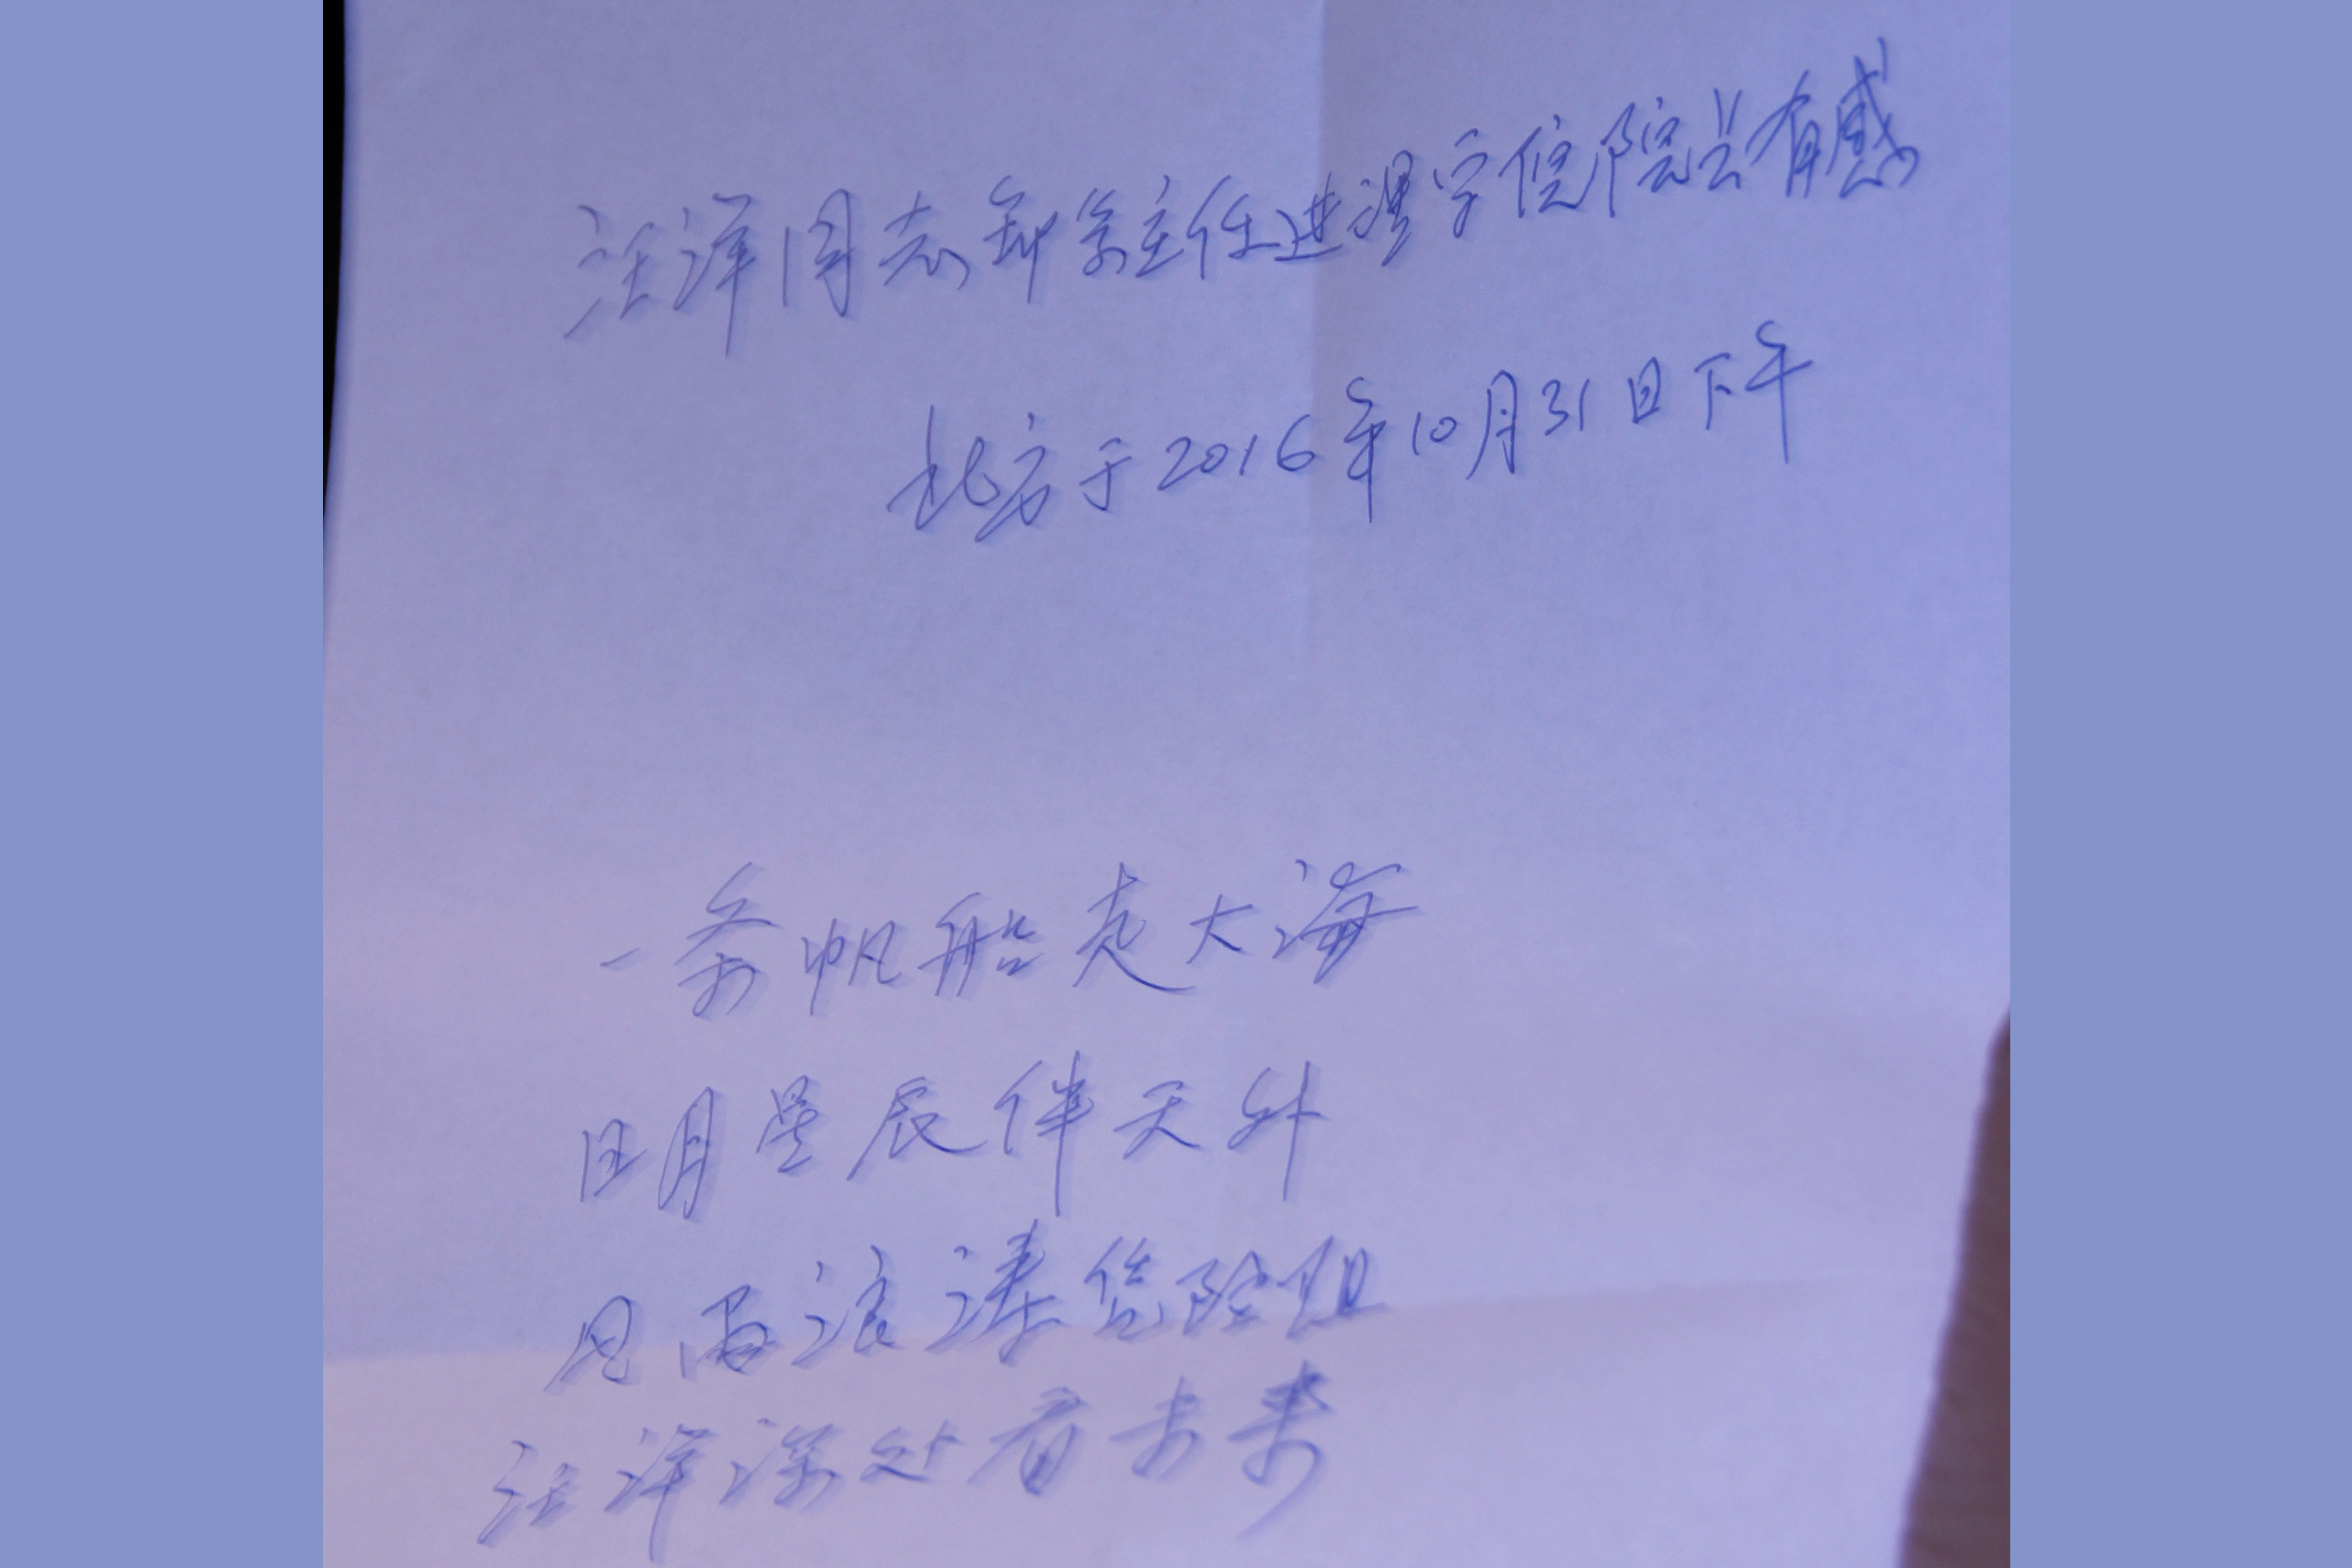 汪洋同志卸系主任进理学位院总有感
北方于2016年10月31日下午
一条帆船走大海
日月星辰伴天外
浪涛险阻
汪洋深处看未来